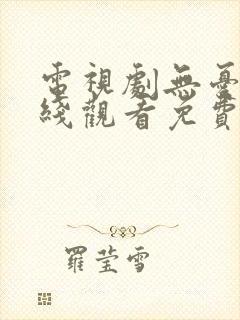 電視劇無憂
綫觀看免費
羅瑩雪